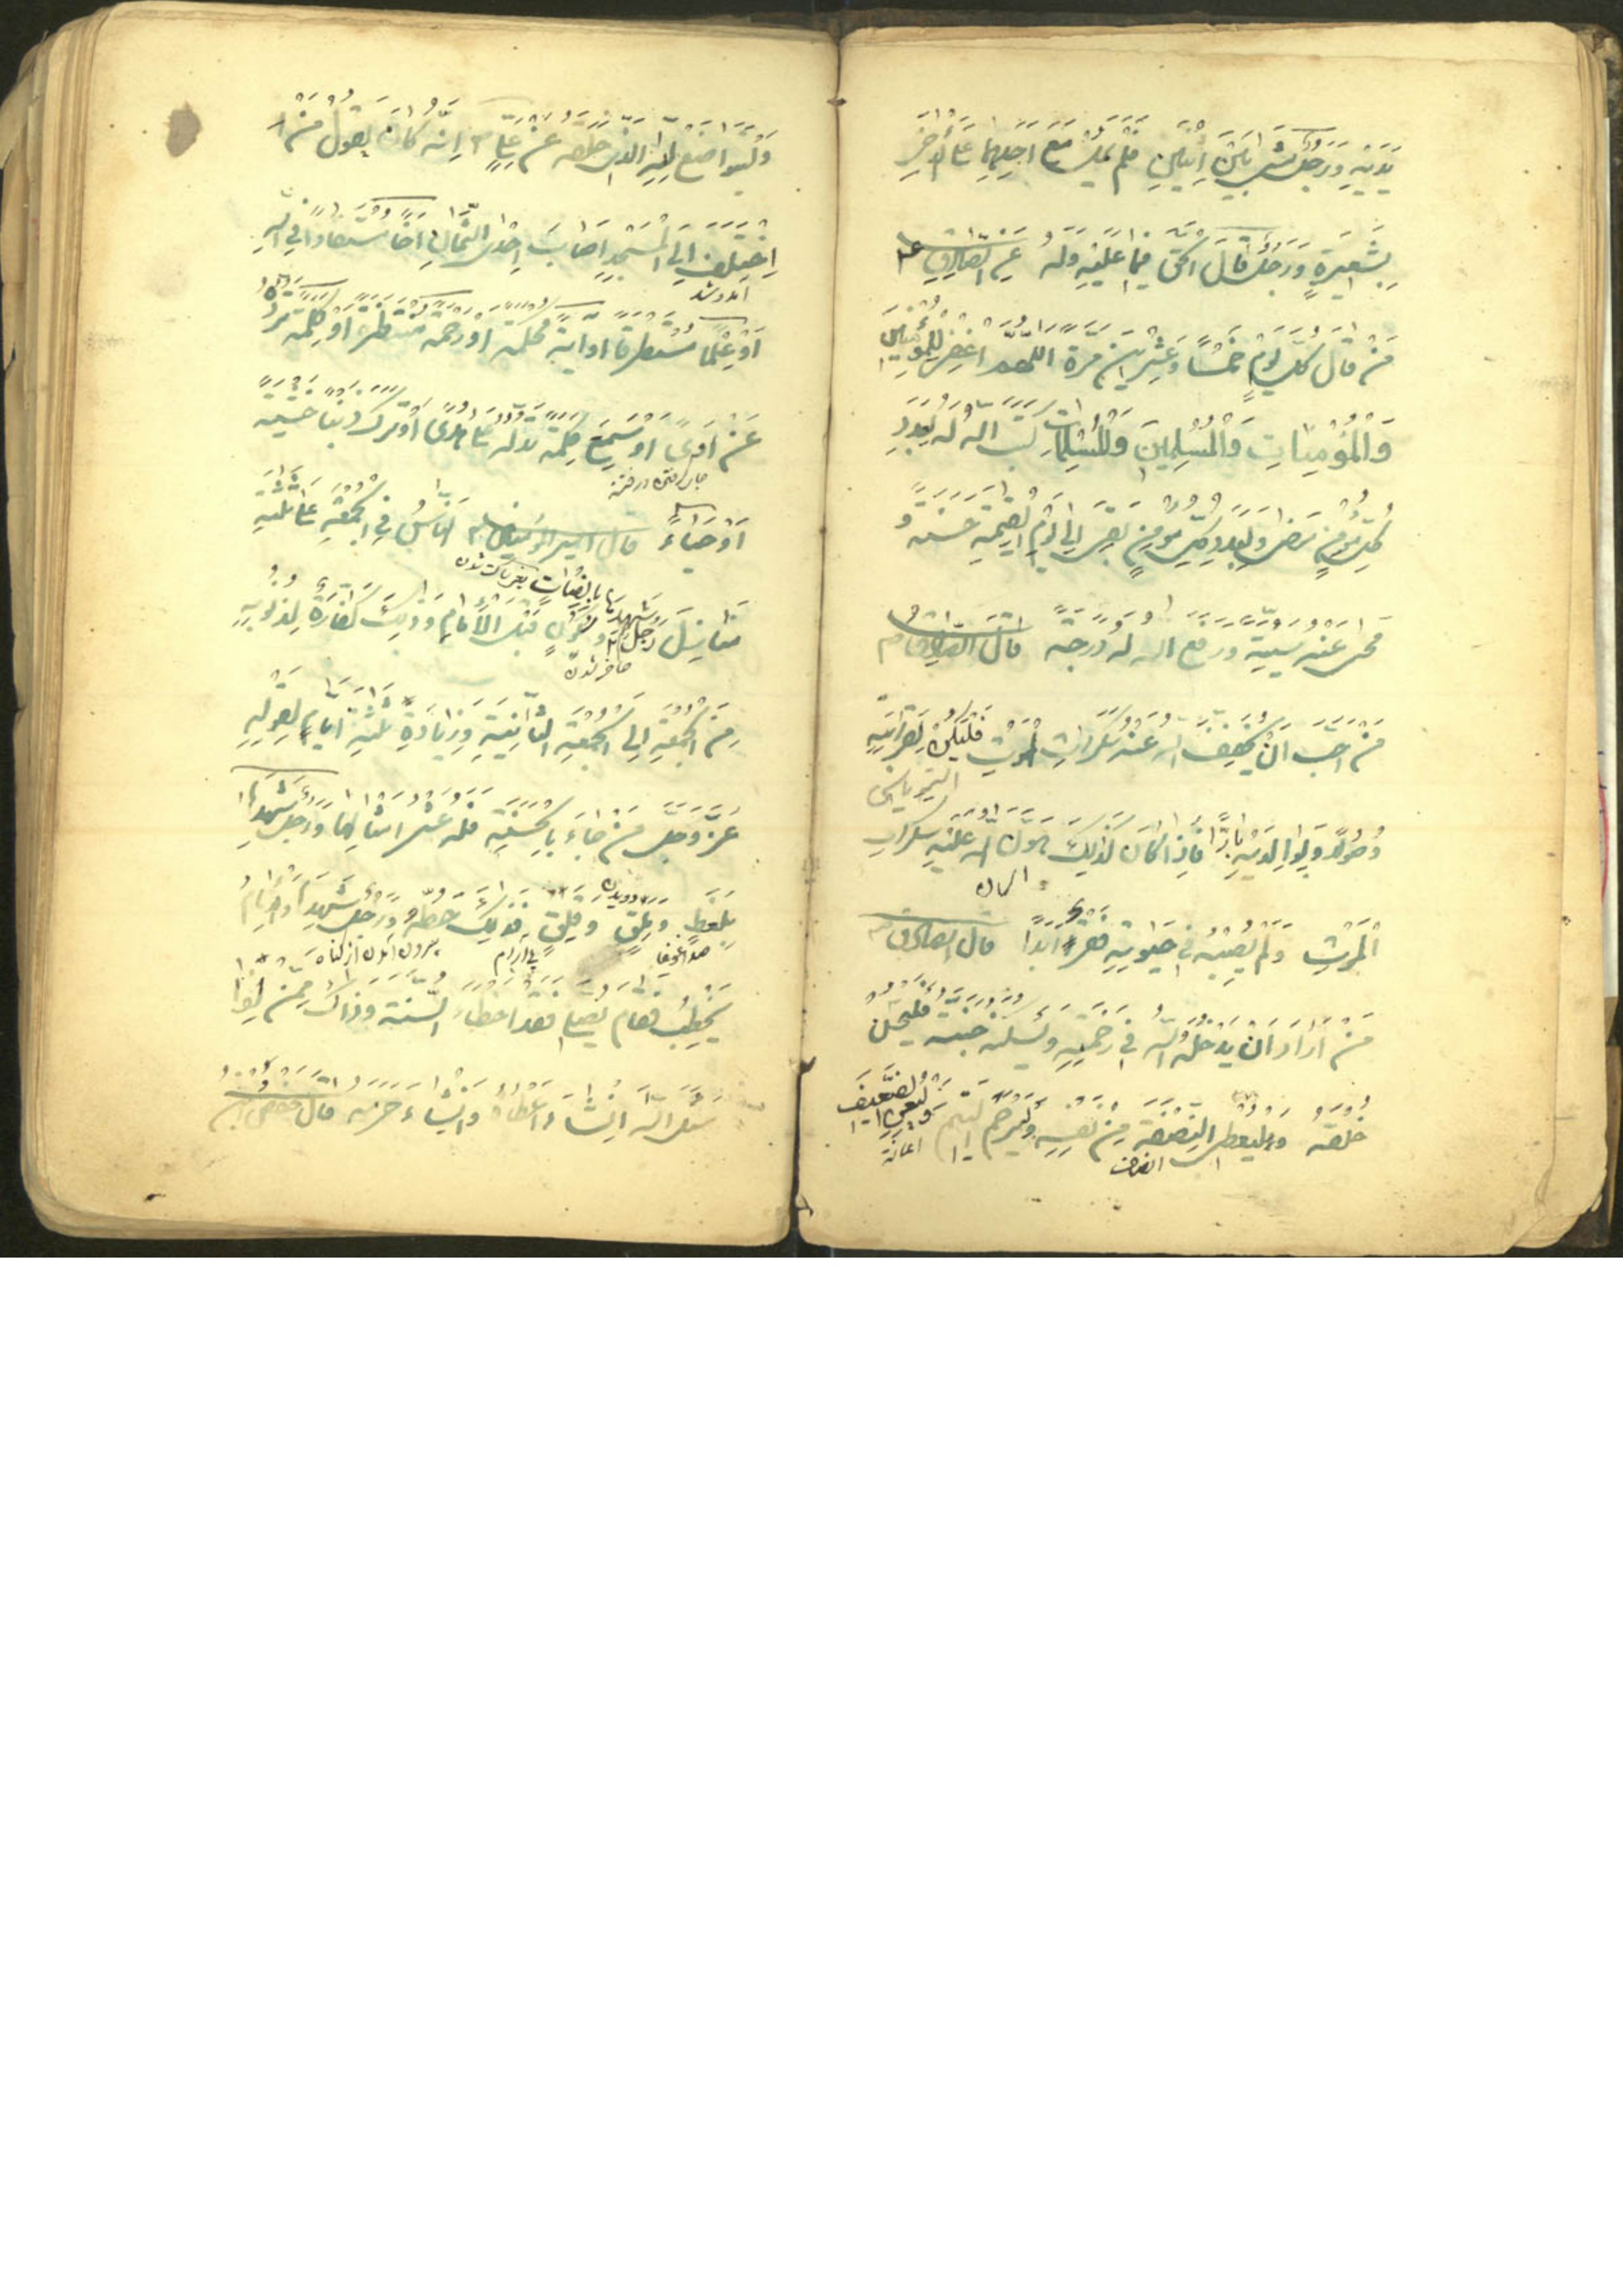 يَدَيْهِ وَرَجُلٌ مَشَى بَيْنَ اِثْنَيْنِ فَلَمْ يَمِلْ مَعَ اَحَدِهِمَا عَلَى الْاٰخَرِ
بِشَعِيرَةٍ وَرَجُلٌ قَالَ الْحَقَّ فِيمَا عَلَيْهِ وَلَهُ عَنِ الصَّادِقِ ع م
مَنْ قَالَ كُلَّ يَوْمٍ خَمْسًا وَعِشْرِينَ مَرَّةً اَللّٰهُمَّ اغْفِرْ لِلْمُؤْمِنِينَ
وَالْمُؤْمِنَاتِ وَالْمُسْلِمِينَ وَالْمُسْلِمَاتِ كَتَبَ اللّٰهُ لَهُ بِعَدَدِ
كُلِّ مُؤْمِنٍ مَضَى وَبِعَدَدِ كُلِّ مُؤْمِنٍ بَقِيَ اِلَى يَوْمِ الْقِيٰمَةِ حَسَنَةً وَ
مَحَى عَنْهُ سَيِّئَةً وَرَفَعَ اللّٰهُ لَهُ دَرَجَةً قَالَ الصَّادِقُ م
مَنْ اَحَبَّ اَنْ يُخَفِّفَ اللّٰهُ عَنْهُ سَكَرَاتِ الْمَوْتِ فَلْيَكُنْ لِقَرَابَتِهِ
وَصُولًا وَبِوَالِدَيْهِ بَارًّا فَاِذَا كَانَ كَذٰلِكَ هَوَّنَ اللّٰهُ عَلَيْهِ سَكَرَاتِ
الْمَوْتِ وَلَمْ يُصِبْهُ فِي حَيٰوتِهِ فَقْرٌ اَبَدًا قَالَ الصَّادِقُ م
مَنْ اَرَادَ اَنْ يُدْخِلَهُ اللّٰهُ فِي رَحْمَتِهِ وَيُسْكِنَهُ جَنَّتَهُ فَلْيُحْسِنْ
خُلْقَهُ وَلْيُعْطِ النَّصَفَةَ مِنْ نَفْسِهِ وَلْيَرْحَمِ الْيَتِيمَ وَلْيُعِنِ الضَّعِيفَ
وَلْيَتَوَاضَعْ لِلّٰهِ الَّذِي خَلَقَهُ عَنْ عَلِيٍّ م اِنَّهُ كَانَ يَقُولُ مَنْ
اِخْتَلَفَ اِلَى الْمَسْجِدِ اَصَابَ اِحْدَى الثَّمَانِ اَخًا مُسْتَفَادًا فِي اللّٰهِ
اَوْ عِلْمًا مُسْتَطْرَفًا اَوْ اٰيَةً مُحْكَمَةً اَوْ رَحْمَةً مُنْتَظَرَةً اَوْ كَلِمَةً تَرُدُّهُ
عَنْ رَدًى اَوْ يَسْمَعُ كَلِمَةً تَدُلُّهُ عَلَى هُدًى اَوْ تَرَكَ ذَنْبًا خَشْيَةً
اَوْ حَيَاءً قَالَ اَمِيرُ الْمُؤْمِنِينَ م اَلنَّاسُ فِي الْجُمُعَةِ عَلَى ثَلٰثَةِ
مَنَازِلَ رَجُلٌ شَهِدَهَا بِاِنْصَاتٍ وَسُكُونٍ قَبْلَ الْاِمَامِ وَذٰلِكَ كَفَّارَةٌ لِذُنُوبِهِ
مِنَ الْجُمُعَةِ اِلَى الْجُمُعَةِ الثَّانِيَةِ وَزِيَادَةِ ثَلٰثَةِ اَيَّامٍ لِقَوْلِهِ
عَزَّ وَجَلَّ مَنْ جَاءَ بِالْحَسَنَةِ فَلَهُ عَشْرُ اَمْثَالِهَا وَرَجُلٌ شَهِدَهَا
بِلَغَطٍ وَمَلَقٍ وَقَلَقٍ فَذٰلِكَ حَظُّهُ وَرَجُلٌ شَهِدَهَا وَالْاِمَامُ
يَخْطُبُ فَقَامَ يُصَلِّي فَقَدْ اَخْطَاَ السُّنَّةَ وَذَاكَ مِمَّنْ اِذَا
سَئَلَ اللّٰهَ اِنْ شَاءَ اَعْطَاهُ وَاِنْ شَاءَ حَرَمَهُ قَالَ